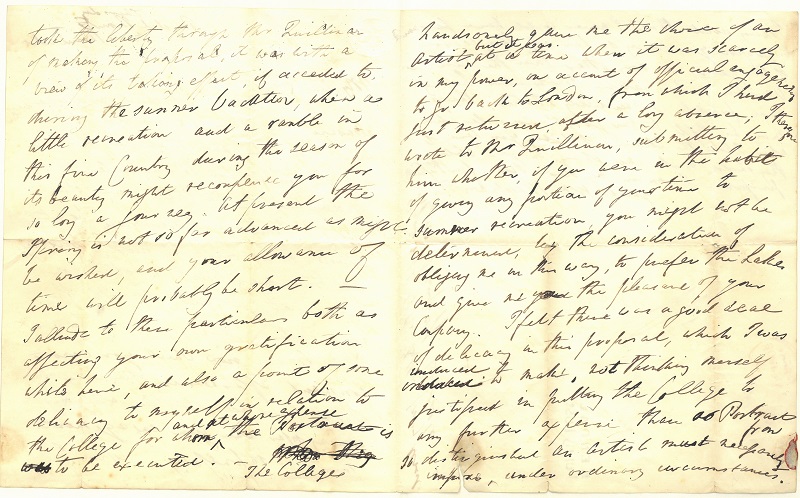 took the liberty through Mr Quillinan
of making the proposal, it was with a
view to its taking effect, if acceded to,
during the summer Vacation, when a
little recreation and a ramble in
this fine Country during the season of
its beauty might recompense you for
so long a journey. At present the
Spring is not so far advanced as might
be wished, and your allowance of
time will probably be short. —
I allude to these particulars both as
affecting your own gratification
while here, and also a point of some
delicacy to myself in relation to
and at whose expense
the College for whom the Portrait is
was to be executed. —
The College
handsomely gave me the choice of an
but it was
Artist, at a time when it was scarcely
in my power, on account of official engagements
to go back to London, from which I had
just returned after a long absence; I therefore
wrote to Mr Quillinan, submitting to
him whether, if you were in the habit
of giving any portion of your time to
summer recreation, you might not be
determined, by the consideration of
obliging me in this way, to prefer the Lakes
and give me the pleasure of your
Company. I felt there was a good deal
of delicacy in this proposal, which I was
induced to make, not thinking myself
justified in putting the College to
any further expense than a Portrait from
so distinguished an Artist must necessarily
impose, under ordinary circumstances.